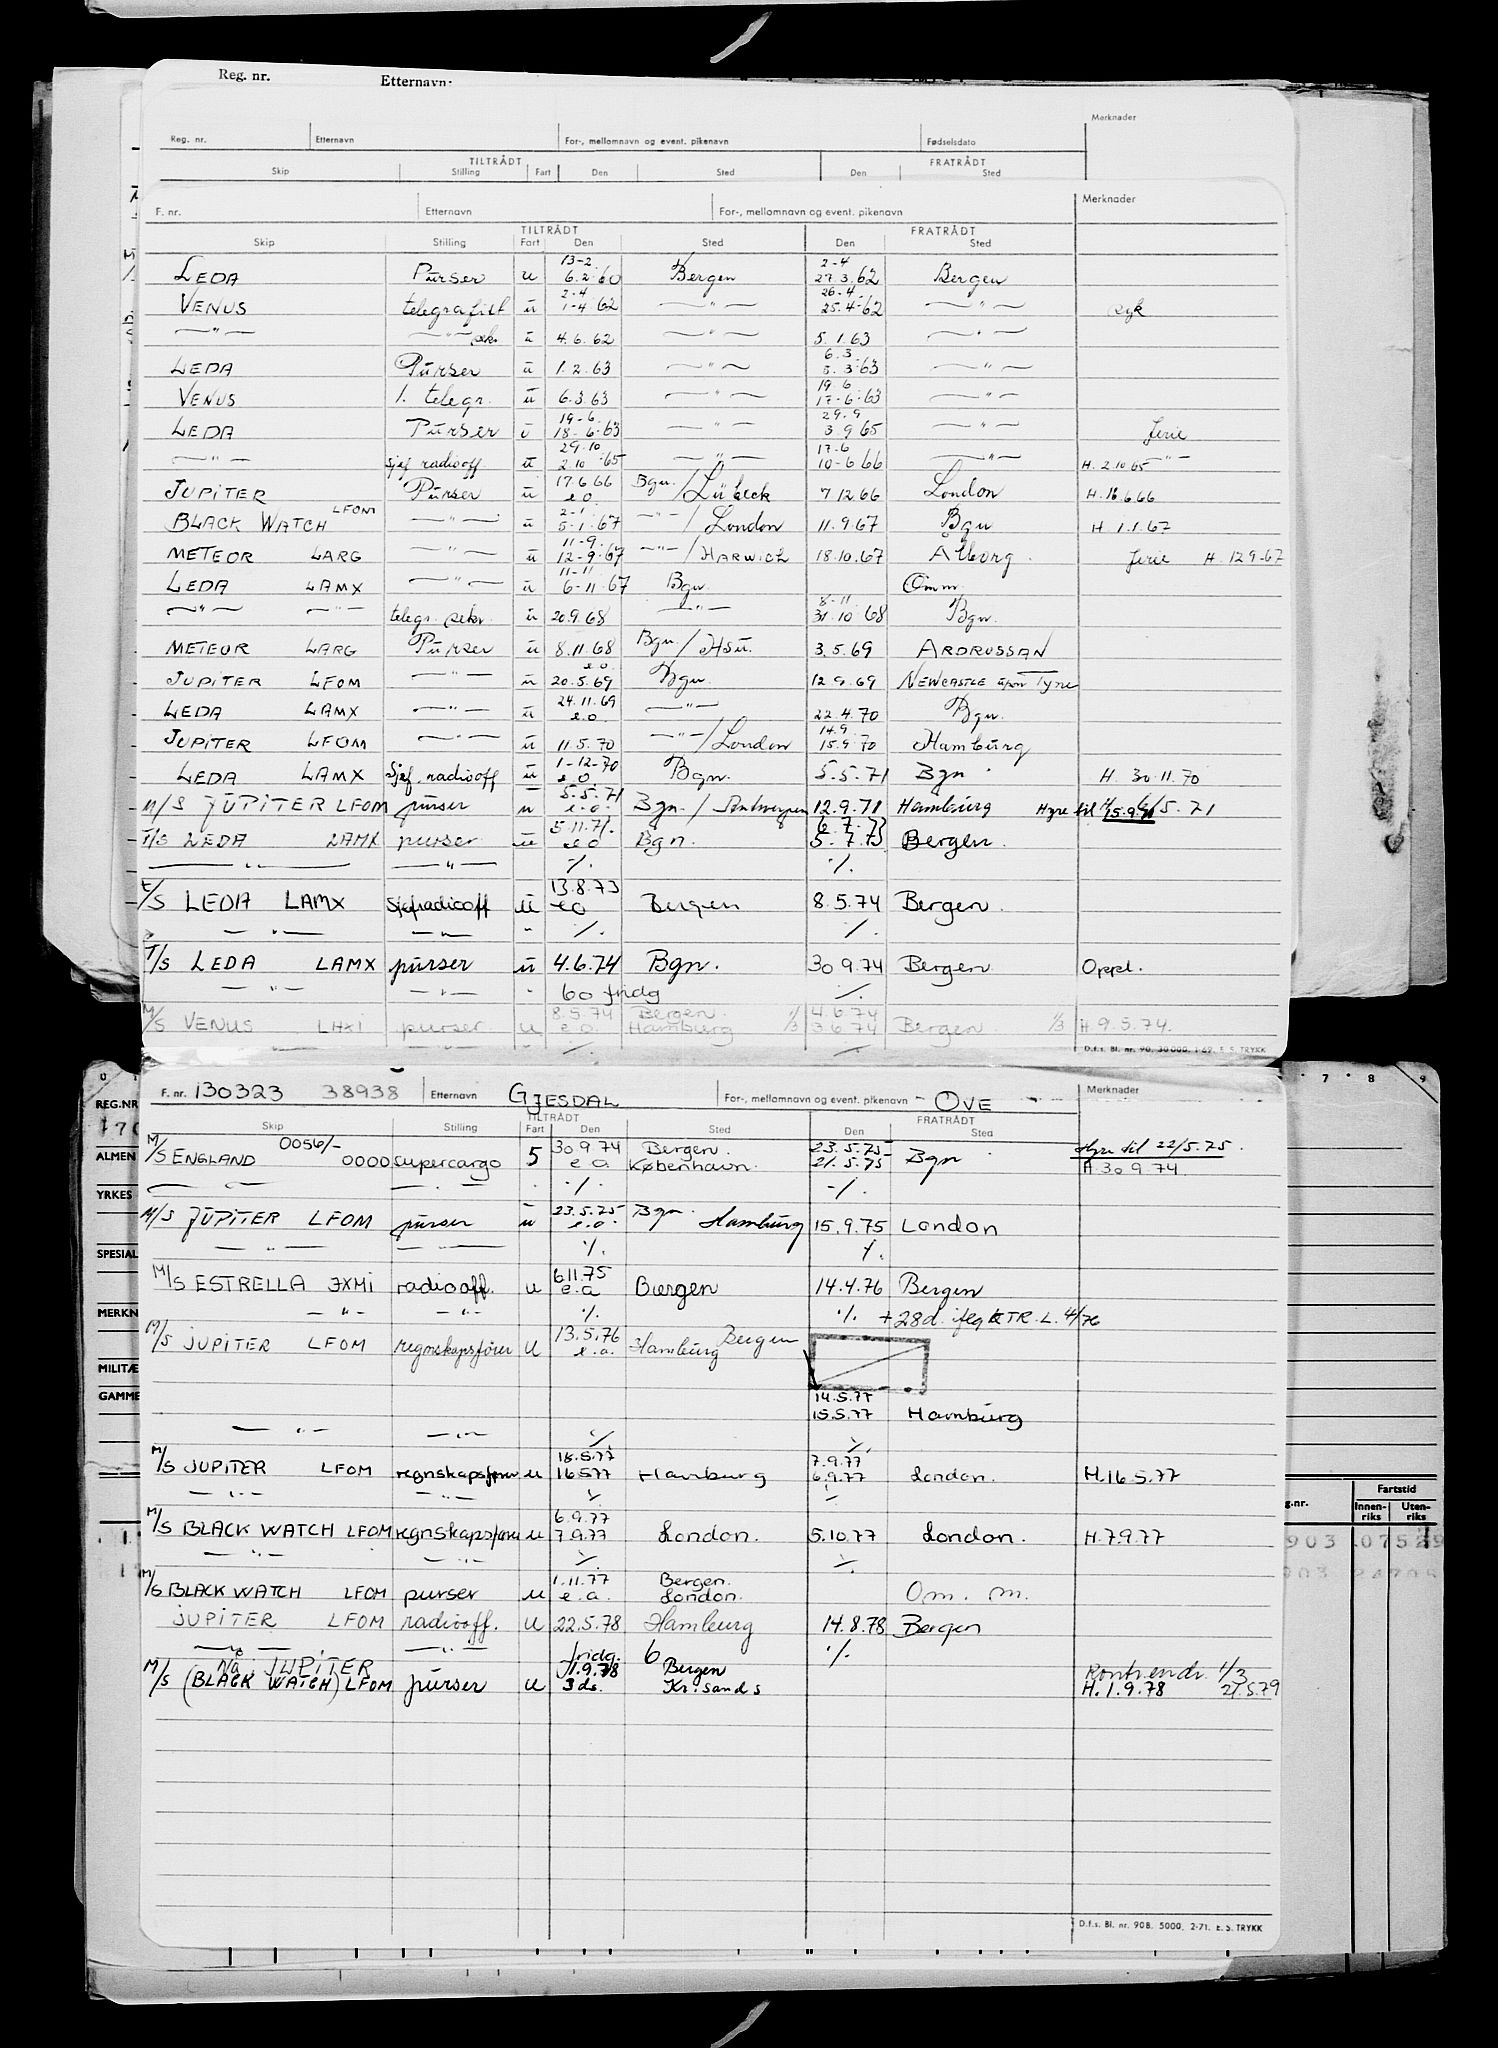 Reg. nr. Etternavn:
Merknader
Reg. nr. Etternavn For-, mellomnavn og event. pikenavn Fødselsdato
TILTRÅDT FRATRÅDT
Skip Stilling Fart Den Sted Den Sted
Merknader
F. nr. Etternavn For-, mellomnavn og event. pikenavn
TILTRÅDT FRATRÅDT
Skip Stilling Fart Den Sted Den Sted
13-2 2-4
LEDA Purser u 6.2.60 Bergen 27.3.62 Bergen
2-4 26-4
VENUS telegrafist u 1-4 62 —"— 25.4-62 —"— syk
—"— —"— sekr. u 4.6.62 —"— 5.1.63 —"—
6.3
LEDA Purser u 1.2.63 —"— 5.3.63 —"—
19.6
VENUS 1. telegr. u 6.3.63 —"— 17-6-63 —"—
19-6. 29.9
LEDA Purser u 18-6-63 —"— 3 9 65 —"— ferie
29.10 17-6
—"— sjef radiooff u 2.10.65 —"— 10-6 66 —"— H. 2.10 65 —"—
17.6 66
JUPITER Purser u e.o Bgn. / Lübeck 7 12 66 London H. 16.6.66
LFOM 2-1
BLACK WATCH —"— u 5-1-67 —"— / London 11.9.67 Bgn H 1.1.67
11-9.
METEOR LARG —"— u 12-9-67 —"— / HARWICH 18.10.67 Ålborg. ferie H. 12 9-67
11-11
LEDA LAMX —"— u 6-11-67 Bgn. Omm.
8-11
—"— —"— telegr. sekr. u 20.9.68 —"— 31.10 68 Bgn.
METEOR LARG Purser u 8.11.68 Bgn. / Hsu. 3.5.69 ARDROSSAN
e.o.
JUPITER LFOM —"— u 20.5.69 Bgn. 12.9.69 NEWCASTLE upon Tyne
24.11.69
LEDA LAMX —"— u e.o. —"— 22.4.70 Bgn.
14.9.
JUPITER LFOM —"— u 11.5.70 —"— / London 15.9.70 Hamburg
1-12-70
LEDA LAMX sjef. radiooff u e.o Bgn. 5.5.71 Bgn H. 30.11.70
5.5.71
M/S JUPITER LFOM purser u e.o. Bgn. / Antwerpen 12.9.71 Hamburg Hyre til 15.9. 5.71
5.11.71. 6.7.73
T/S LEDA LAMX purser u e o Bgn. 5.7.73 Bergen.
—"— —"— ./. ./.
13.8.73
T/S LEDA LAMX Sjefradiooff u e o Bergen 8.5.74 Bergen.
—"— —"— " ./. ./.
T/S LEDA LAMX purser u 4.6.74 Bgn. 30 9.74 Bergen Oppl.
—"— —"— " 60 fridg ./.
8.5.74 Bergen. 1/3 4.6.74
M/S VENUS LHXI purser u e.o. Hamburg 3.6.74 Bergen. 1/3 H 9.5.74.
—"— —"— ./. ./.
D.f.s. Bl. nr. 90. 30000. 1-69. E. S. TRYKK
F. nr. 130323 38938 Etternavn GJESDAL For-, mellomnavn og event. pikenavn OVE Merknader
TILTRÅDT FRATRÅDT
Skip Stilling Fart Den Sted Den Sted
0056/- 30 9.74 Bergen. 23.5.75 Hyre til 22/5.75.
M/S ENGLAND 0000 supercargo 5 e.a. København. 21.5.75 Bgn H 30 9.74
—"— —"— ./. ./.
23.5.75 Bgn.
M/S JUPITER LFOM purser u e.o. Hamburg 15.9.75 London
—"— —"— ./. ./.
6.11.75
M/S ESTRELLA JXMI radiooff. u e.a Bergen 14.4.76 Bergen
—"— —"— ./. ./. +28d. TR. L. 4/76
13.5.76 Bergen
M/S JUPITER LFOM regnskapsfører u e.a. Hamburg
14.5.77
15.5.77 Hamburg
—"— —"— ./. ./.
18.5.77 7.9.77
M/S JUPITER LFOM regnskapsfører u 16577 Hamburg 6.9.77 London. H.16 5.77
—"— —"— ./. ./.
6.9.77
M/S BLACK WATCH LFOM regnskapsfører u 7.9.77 London. 5.10.77 London. H.7.9.77
—"— —"— ./. ./.
1.11.77 Bergen.
M/S BLACK WATCH LFOM purser u e.a. London. Om. m.
JUPITER LFOM radiooff. u 22.5.78 Hamburg 14.8.78 Bergen
—"— —"— fridg. 6 ./.
nå JUPITER 1.9.78 Bergen Kontr.endr. 1/3
M/S (BLACK WATCH) LFOM purser u 3 ds. Kr.sand s H.1.9.78 21.5.79
D.f.s. Bl. nr. 908. 5000. 2-71. E. S. TRYKK
REG.NR
ALMEN
YRKES
SPESIAL
MERKN
MILITÆ
GAMME
7 8 9
Fartstid
g.nr. Innen-riks Uten-riks
903 07529